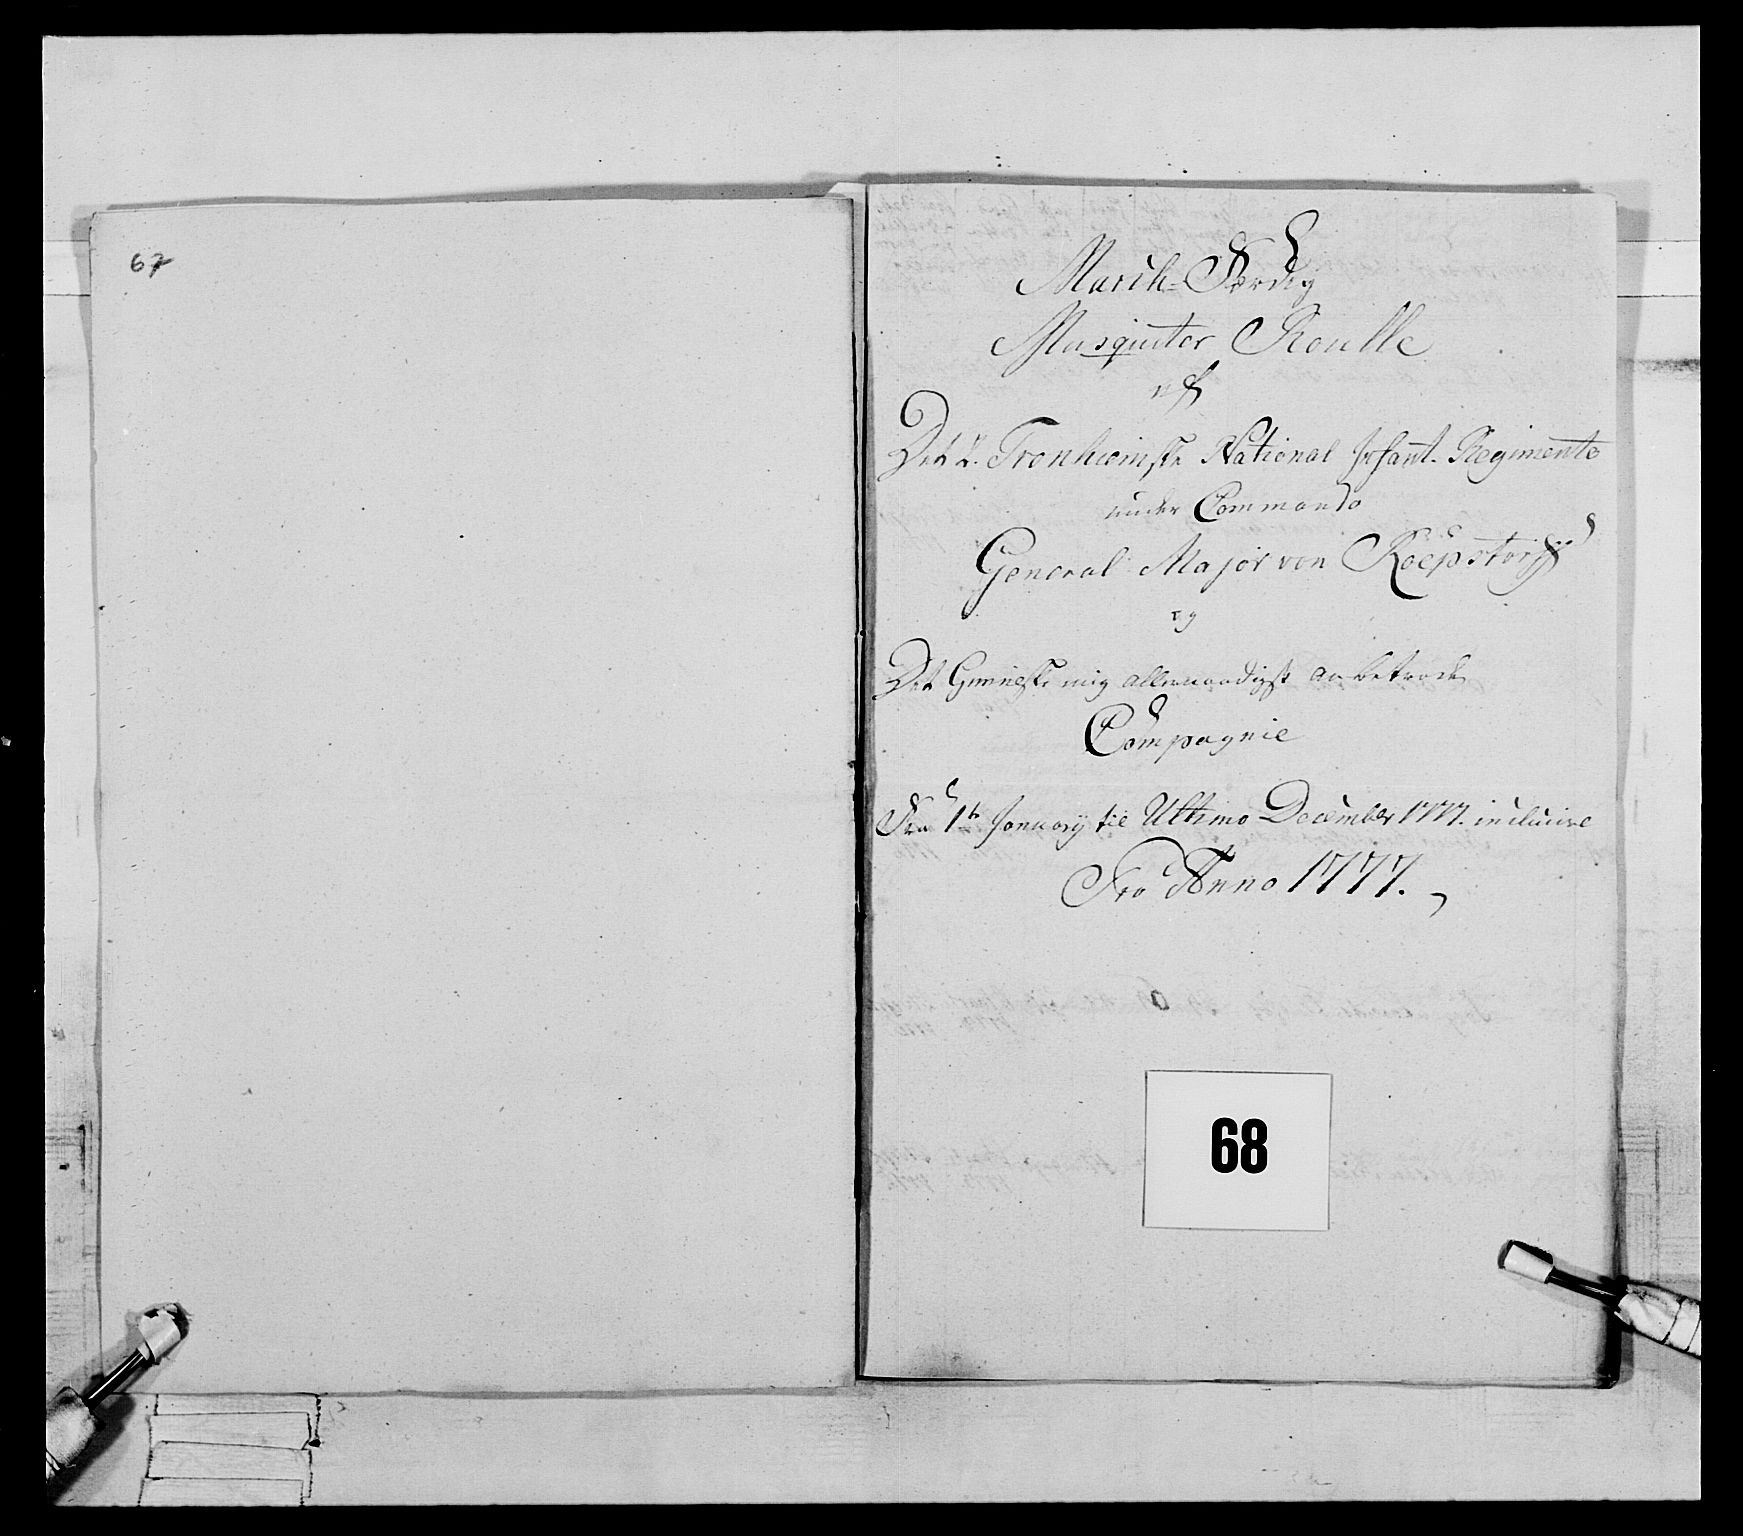 67
March-Færdig
Musqueter Roulle
af
Det 2. Tronhiemske National Infant. Regimente
under Commando
General Major von Roepstorff
og
Det Guulske mig allernaadigst anbetroede
Compagnie
Fra 1te January til Ultimo December 1777. inclusive
Pro Anno 1777.
68